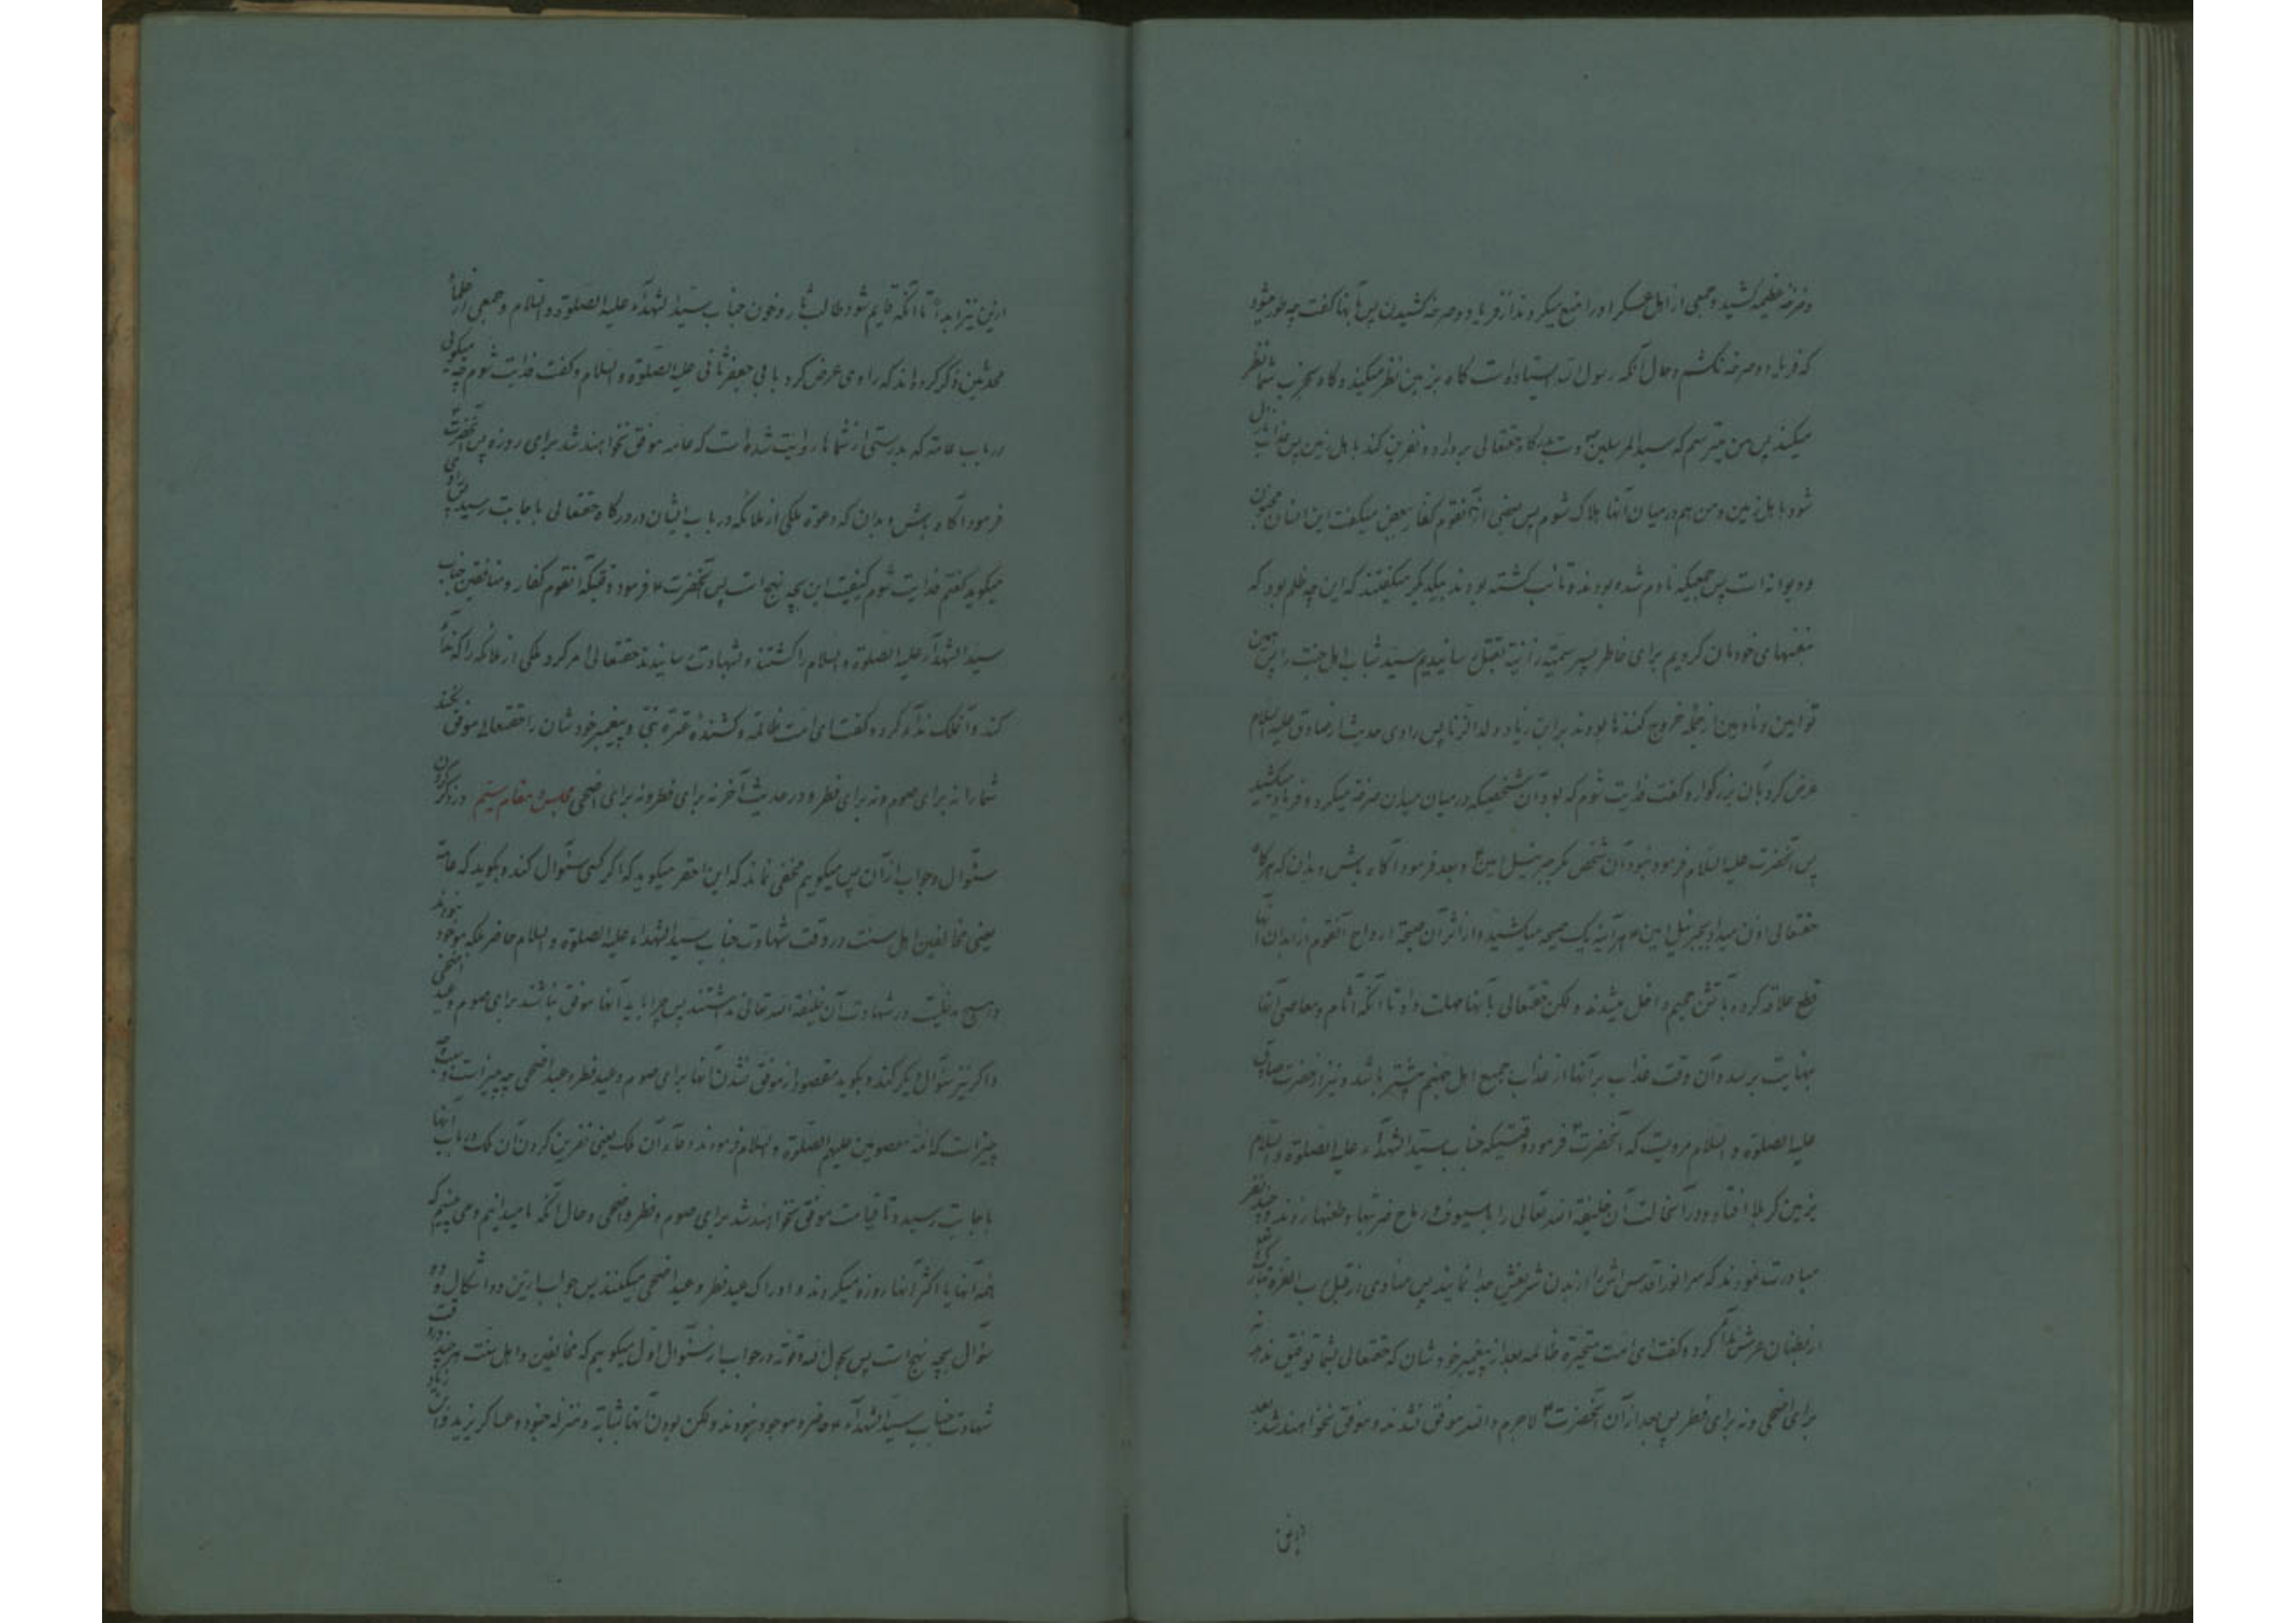 و صرخه عظیمه کشید و جمعی از اهل عسکر او را منع میکردند از فریاد و صرخه کشیدن پس بآنها گفت چه طور میشود
که فریاد و صرخه نکشم و حال آنکه رسول الله ایستاده است گاه بزمین نظر میکند و گاه بحزب شما نظر
میکند پس من میترسم که سید المرسلین ص دست بدرگاه حقتعالی بردارد و نفرین کند باهل زمین پس عذاب نازل
شود باهل زمین و من هم در میان آنها هلاک شوم پس بعضی از آنقوم کفار ببعض میگفت این انسان مجنون
و دیوانه است پس جمعیکه نادم شده بودند و تائب گشته بودند بیکدیگر میگفتند که این چه ظلم بود که
بنفسهای خودمان کردیم برای خاطر پسر سمیه زانیه بقتل رسانیدیم سید شباب اهل جنت را پس همین
توابین و نادمین از جمله خروج کننده‌ها بودند بر ابن زیاد ولد الزنا پس راوی حدیث از صادق علیه السلام
عرض کرد بآن بزرگوار و گفت فدایت شوم که بود آن شخصیکه در میان میان صرخه میکرد و فریاد میکشید
پس آنحضرت علیه السلام فرمود نبود آن شخص مگر جبرئیل امین ع و بعد فرمود آگاه باش و بدان که هرگاه
حقتعالی اذن میداد بجبرئیل امین ع هر آینه یک صیحه میکشید و از اثر آن صیحه ارواح آنقوم از ابدان آنها
قطع علاقه کرده بآتش جحیم داخل میشدند و لکن حقتعالی بآنها مهلت داد تا آنکه آثام و معاصی آنها
بنهایت برسد و آن وقت عذاب بر آنها از عذاب جمیع اهل جهنم بیشتر باشد و نیز از حضرت صادق
علیه الصلوة و السلام مرویست که آنحضرت ع فرمود وقتیکه جناب سید الشهدآء علیه الصلوة و السلام
بزمین کربلا افتاد و در آنحالت آن خلیفة الله تعالی را با سیوف و رماح ضربتها و طعنها زدند و چند نفر
مبادرت نمودند که سر انور اقدس اش را از بدن شریفش جدا نمایند پس منادی از قبل رب العزة تبارک و تعالی
از بطنان عرش ندآ کرد و گفت ای امت متحیرة ظالمه بعد از پیغمبر خودشان که حقتعالی بشما توفیق ندهد نه
برای اضحی و نه برای فطر پس بعد از آن آنحضرت ع لاجرم والله موفق نشدند و موفق نخواهند شد بعد
از این
ازین نیز ابدا تا آنکه قایم شود طالب ثار و خون جناب سید الشهدآء علیه الصلوة و السلام و جمعی از علمآء
محدثین ذکر کرده‌اند که راوی عرض کرد بابی جعفر ثانی علیه الصلوة و السلام و گفت فدایت شوم چه میگوئی
در باب عامه که بدرستی از شما ها روایت شده است که عامه موفق نخواهند شد برای روزه پس آنحضرت ع
فرمود آگاه باش و بدان که دعوة ملکی از ملائکه در باب ایشان در درگاه حقتعالی باجابت رسید پس راوی
میگوید گفتم فدایت شوم کیفیت این بچه نهج است پس آنحضرت ع فرمود وقتیکه آنقوم کفار و منافقین جناب
سید الشهدآء علیه الصلوة و السلام را کشتند و بشهادت رسانیدند حقتعالی امر کرد ملکی از ملائکه را که ندآء
کند و آنملک ندآء کرد و گفت ای امت ظالمه و کشندۀ عترة نبی و پیغمبر خودشان را حقتعالی موفق نکند
شما را نه برای صوم و نه برای فطر و در حدیث آخر نه برای فطر و نه برای اضحی مجلس و مقام سیم در ذکر کردن
سئوال و جواب از آن پس میگویم مخفی نماند که این احقر میگوید که اگر کسی سئوال کند و بگوید که عامه
یعنی مخالفین اهل سنت در وقت شهادت جناب سید الشهدآء علیه الصلوة و السلام حاضر بلکه موجود نبودند
و هیچ مدخلیت در شهادت آن خلیفة الله تعالی نداشتند پس چرا باید آنها موفق نباشند برای صوم و عید اضحی
و اگر نیز سئوال دیگر کند و بگوید مقصود از موفق نشدن آنها برای صوم و عید فطر و عید اضحی چه چیز است و بچه
چیز است که ائمه معصومین علیهم الصلوة و السلام فرمودند دعاء آن ملک یعنی نفرین کردن آن ملک در باب آنها
باجابت رسید و تا قیامت موفق نخواهند شد برای صوم و فطر و اضحی و حال آنکه ما میدانیم و می بینیم که
همه آنها یا اکثر آنها روزه میگیرند و ادراک عید فطر و عید اضحی میکنند پس جواب ازین دو اشکال و دو
سئوال بچه نهج است پس بحول الله و قوته در جواب از سئوال اول میگوییم که مخالفین و اهل سنت هر چند در وقت
شهادت جناب سید الشهدآء ع حاضر و موجود نبودند و لکن بودن آنها بمثابه و منزله جنود و عساکر یزید و ابن زیاد